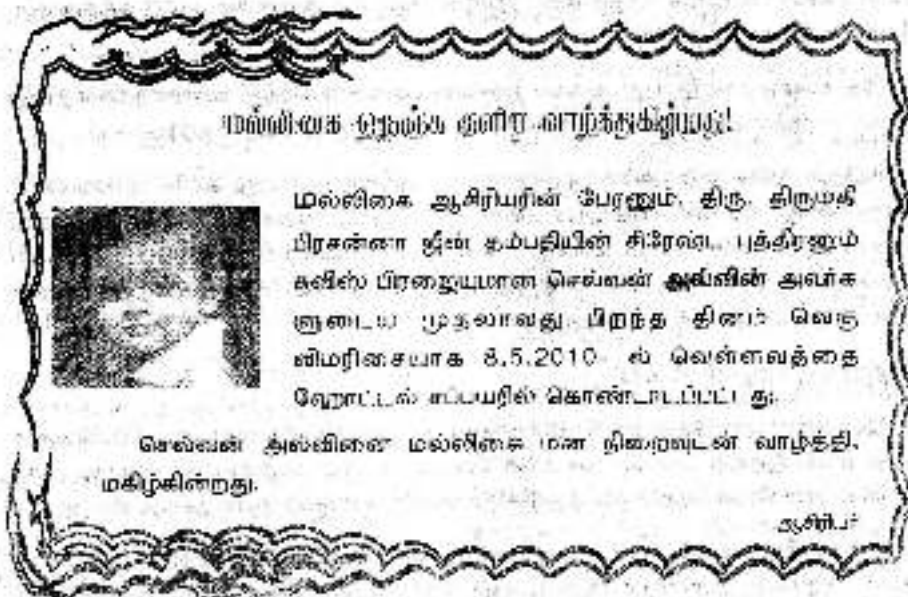 மல்லிகை ஒருங்க குளிர வாழ்த்துகின்றது!
மல்லிகை ஆசிரியரின் பேரனும், திரு. திருமதி
பிரசன்னா ஜீன் தம்பதியின் சிரேஷ்ட புத்திரனும்
சுவிஸ் பிரஜையுமான செல்வன் அல்வின் அவர்க
ளுடைய முதலாவது பிறந்த தினம் வெகு
விமரிசையாக 8.5.2010 ல் வெள்ளவத்தை
ஹோட்டல் சப்பயரில் கொண்டாடப்பட்டது.
செல்வன் அல்வினை மல்லிகை மன நிறைவுடன் வாழ்த்தி,
மகிழ்கின்றது.
ஆசிரியர்